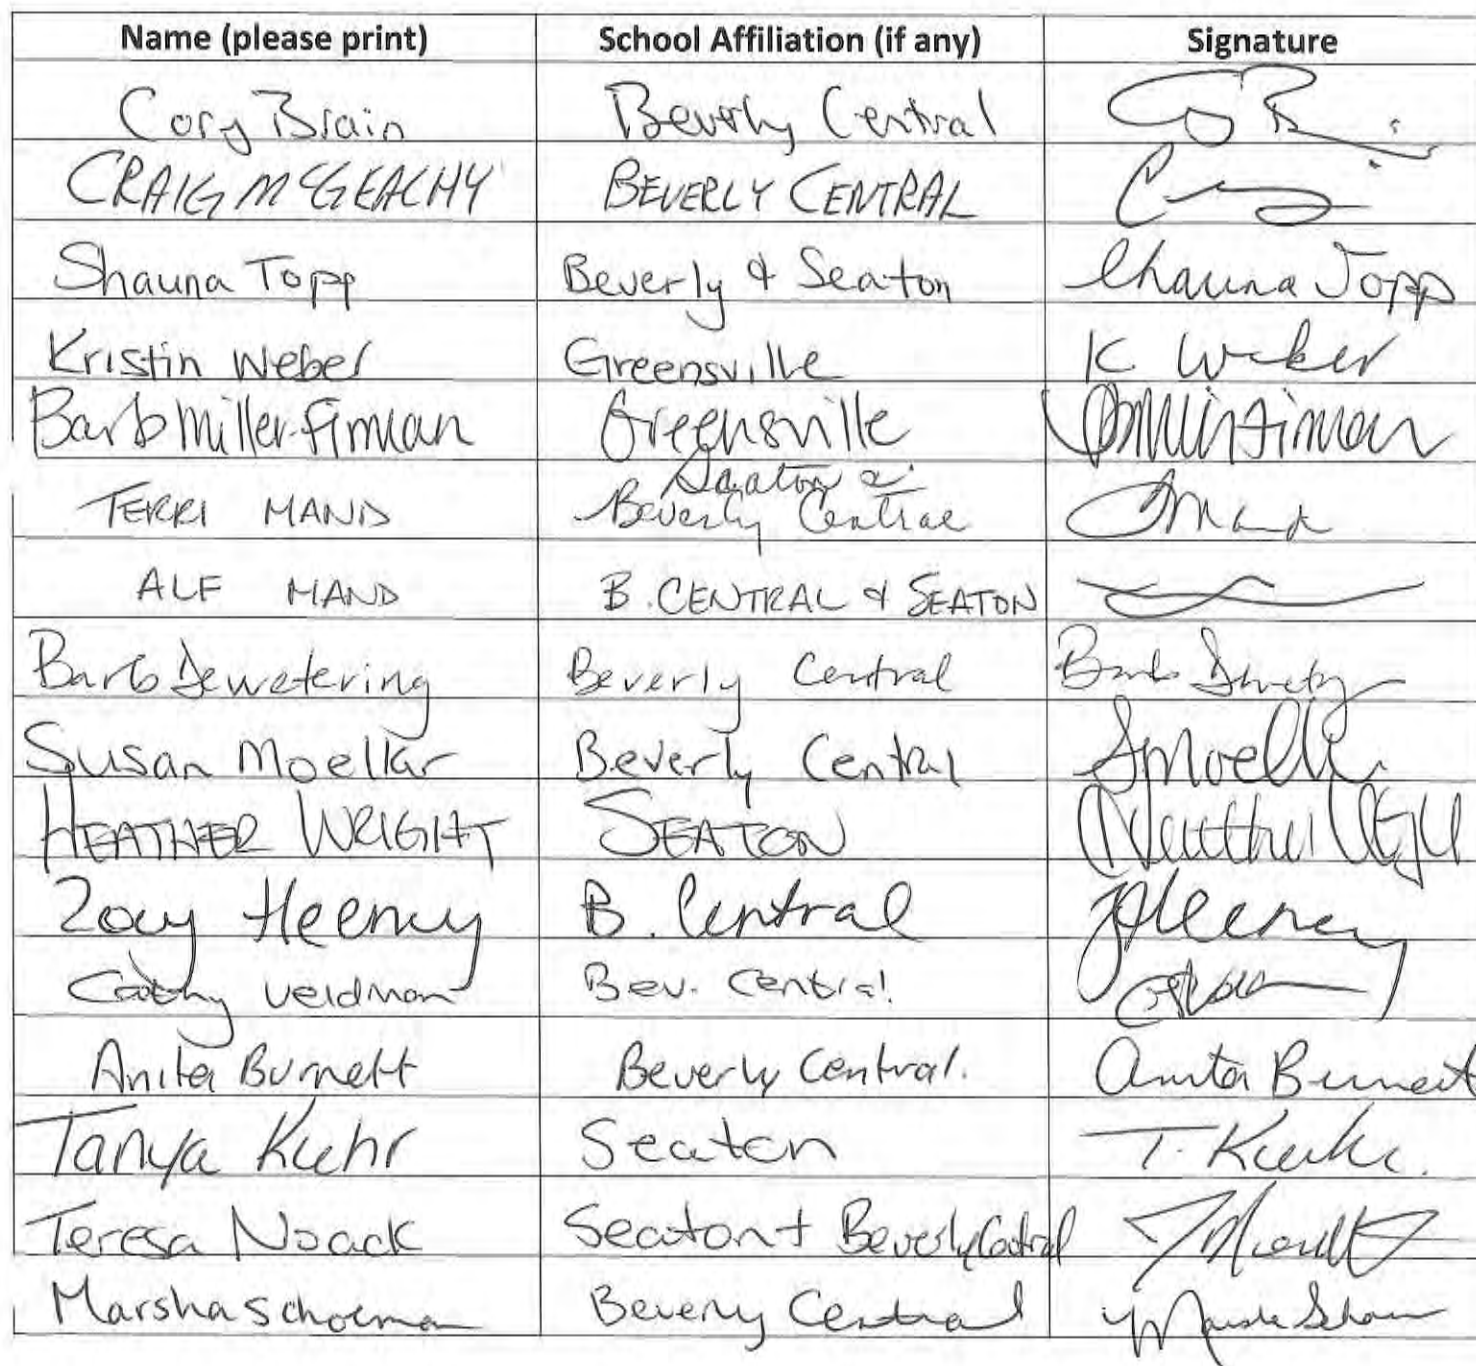 Name (please print) School Affiliation (if any) Signature
Cory Brain Beverly Central
CRAIG McGEACHY BEVERLY CENTRAL
Shauna Topp Beverly & Seaton Shauna Topp
Kristin Weber Greensville K Weber
Barb Miller-Finman Greensville
Seaton &
TERRI MAND Beverly Central
ALF MAND B. CENTRAL & SEATON
Barb Dewetering Beverly Central Barb
Susan Moelker Beverly Central
HEATHER WRIGHT SEATON Heather
Zoey Heeney B. Central
Cathy Veldman Bev. Central
Anita Burnett Beverly Central. Anita Burnett
Tanya Kuehr Seaton T. 
Teresa Noack Seaton + Beverly Central
Marsha Schoeman Beverly Central